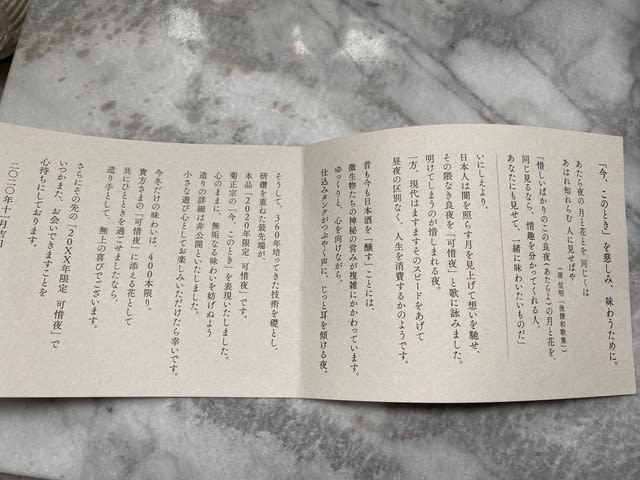 「今、このとき」を慈しみ、味わうために。
あたら夜の 月と花とを 同じくは
あはれ知れらむ 人に見せばや
（源 信明『後撰和歌集』）
「惜しいばかりのこの良夜（あたらよ）の月と花を、
同じ見るなら、情趣を分かってくれる人、
あなたにも見せて、一緒に味わいたいものだ」
いにしえより、
日本人は闇を照らす月を見上げて想いを馳せ、
その隈なき良夜を「可惜夜」と歌に詠みました。
明けてしまうのが惜しまれる夜。
一方、現代はますますそのスピードをあげて
昼夜の区別なく、人生を消費するかのようです。
昔も今も日本酒を「醸す」ことには、
微生物たちの神秘の営みが複雑にかかわっています。
ゆっくりと、心を向けながら、
仕込みタンクがつぶやく声に、じっと耳を傾ける夜。
そうして、360年培ってきた技術を礎とし、
研鑽を重ねた最先端が、
本品「2020年限定 可惜夜」です。
菊正宗の「今、このとき」を表現いたしました。
心のままに、無垢なる味わいを妨げぬよう
造りの詳細は非公開といたしました。
小さな遊び心としてお楽しみいただけたら幸いです。
今冬だけの味わいは、400本限り。
貴方さまの「可惜夜」に添える花として
共にひとときを過ごせましたなら、
造り手として、無上の喜びでございます。
さらにその先の「20XX年限定 可惜夜」で
いつかまた、お会いできますことを
心待ちにしております。
二〇二〇年十一月吉日